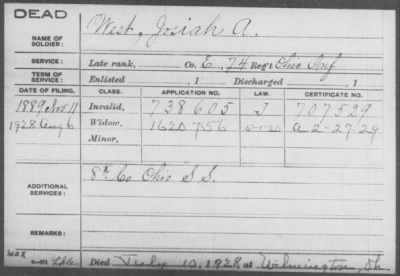 DEAD
NAME OF SOLDIER: West, Josiah A.
SERVICE: Late rank, Co. E, 74 Reg't Ohio Inf
TERM OF SERVICE: Enlisted , 1 Discharged , 1
DATE OF FILING. CLASS. APPLICATION NO. LAW. CERTIFICATE NO.
1889 Nov 11 Invalid, 738605 J 707529
1928 Aug 6 Widow, 1620756 5-1-20 a 2-27-29
Minor,
ADDITIONAL SERVICES: 8th Co Ohio S S.
REMARKS:
Died July 10, 1928 at Wilmington, Oh